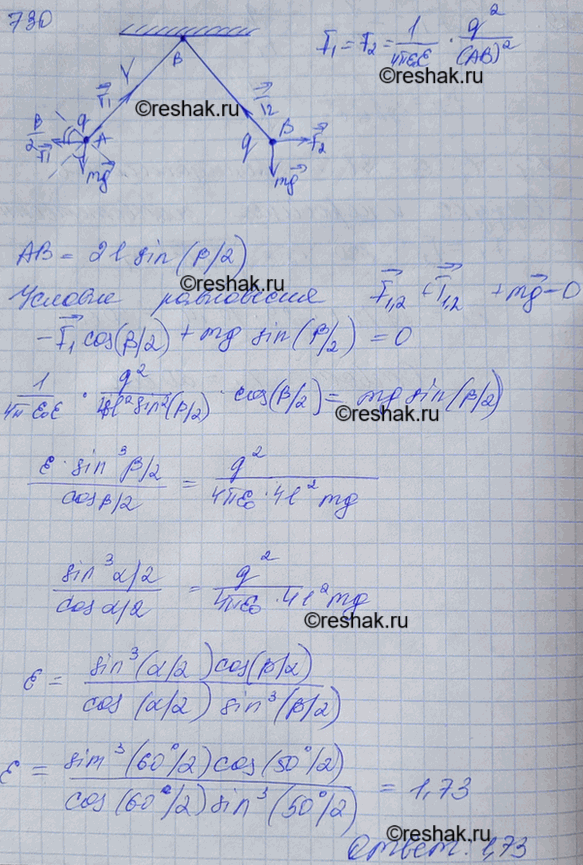 730
F₁ = F₂ = 1/4πε₀ε · q²/(AB)²
B
T₁
T₂
Y
©reshak.ru
β/2
q
A
F₁
mg
q
B
F₂
mg
AB = 2l sin(β/2)
©reshak.ru
Условие равновесия F₁,₂ + T₁,₂ + mg = 0
-F₁ cos(β/2) + mg sin(β/2) = 0
1/4πε₀ε · q²/4l² sin²(β/2) · cos(β/2) = mg sin(β/2)
©reshak.ru
ε · sin³ β/2 / cos β/2 = q²/4πε₀ · 4l² mg
sin³ α/2 / cos α/2 = q²/4πε₀ · 4l² mg
©reshak.ru
ε = sin³(α/2) cos(β/2) / cos(α/2) sin³(β/2)
©reshak.ru
ε = sin³(60°/2) cos(50°/2) / cos(60°/2) sin³(50°/2) = 1,73
©reshak.ru
Ответ: 1,73